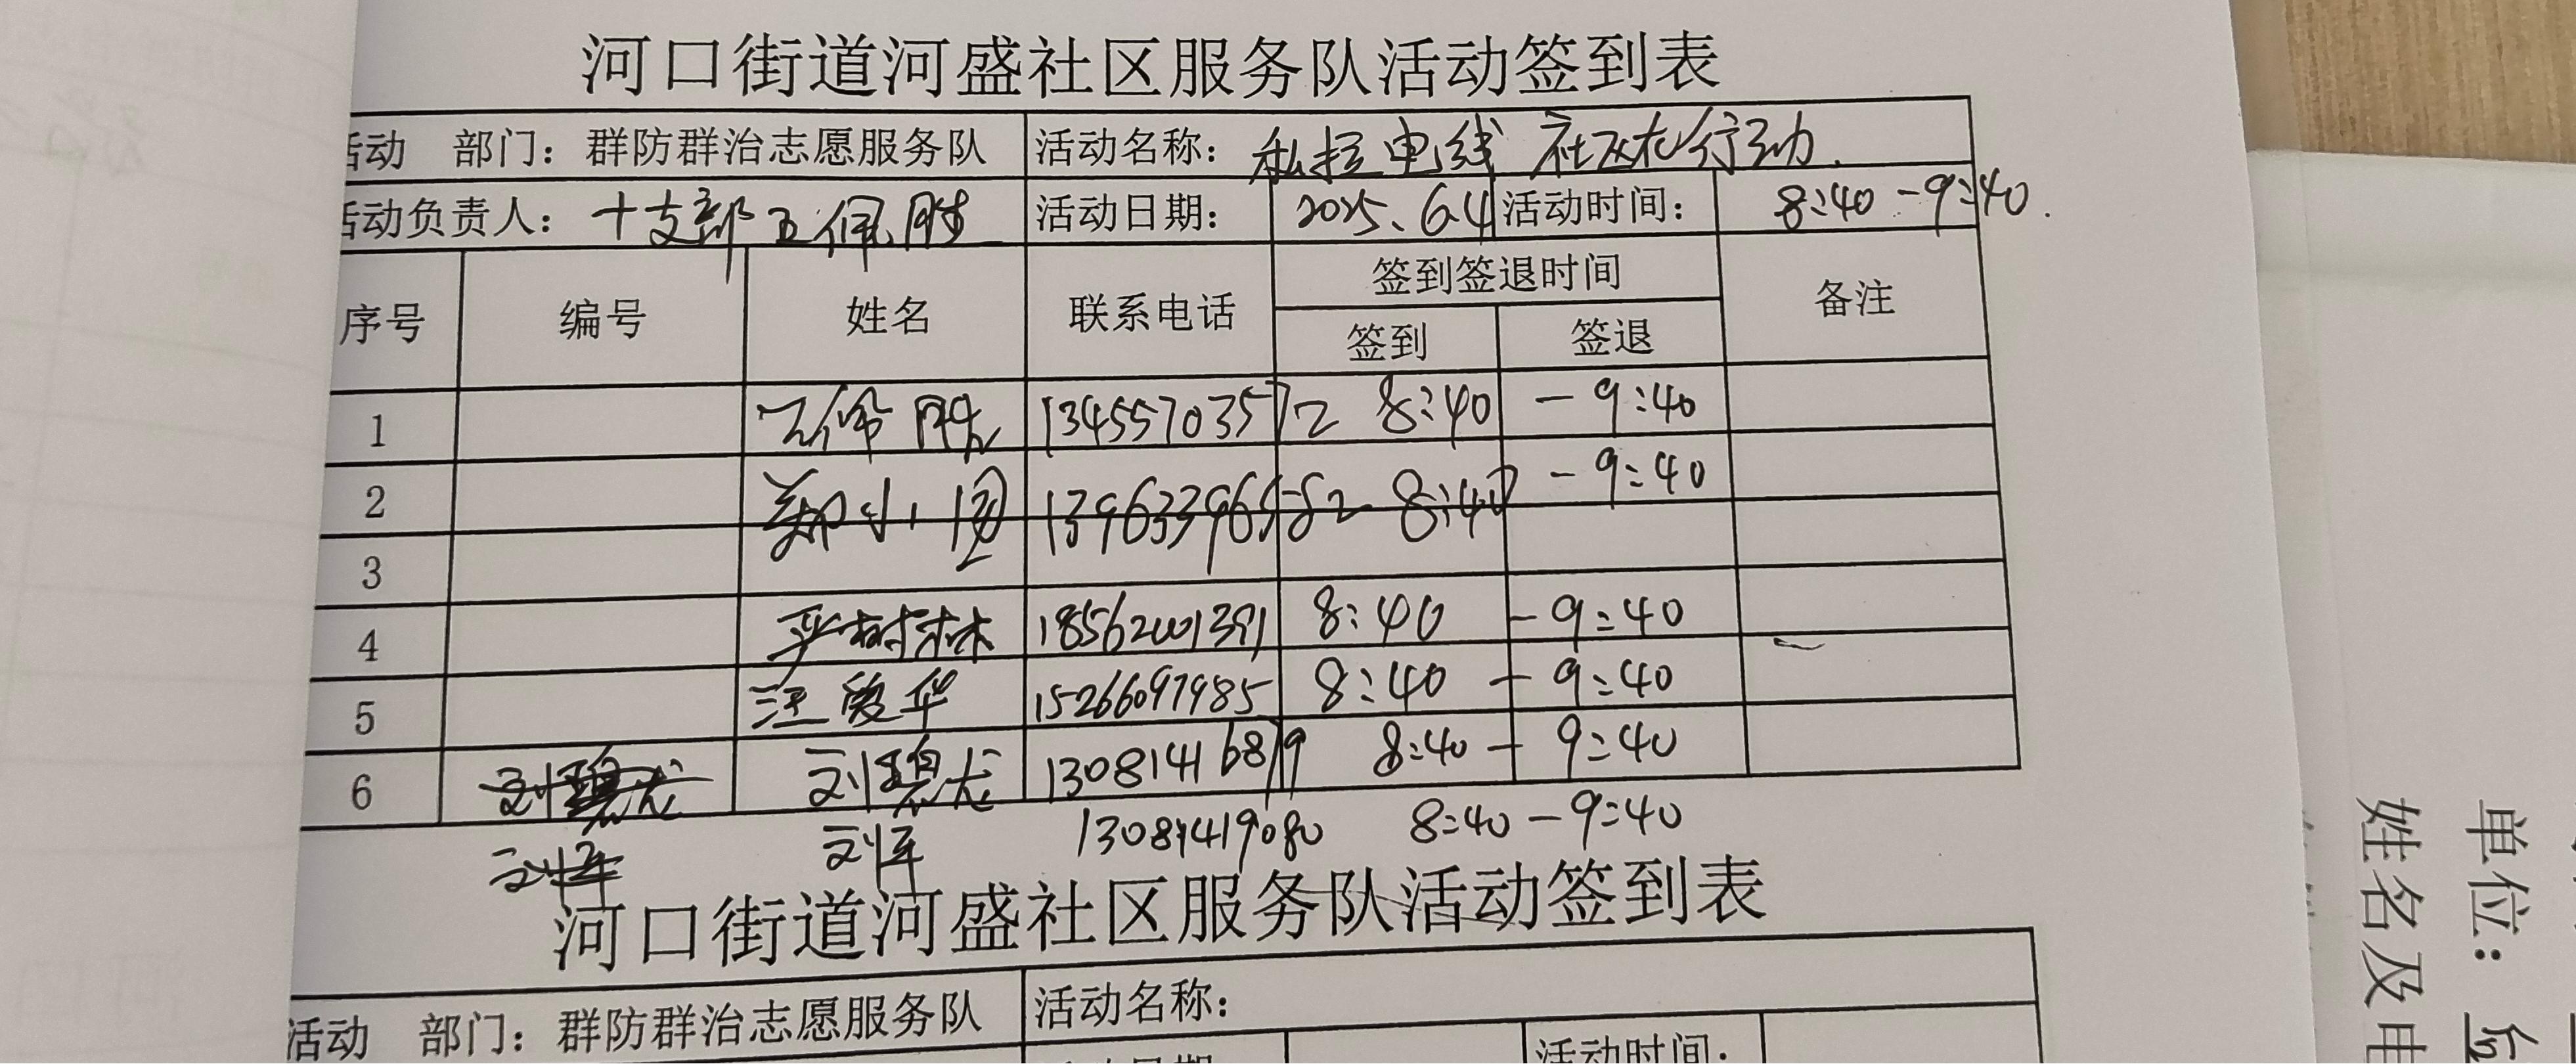 河口街道河盛社区服务队活动签到表
活动 部门：群防群治志愿服务队 活动名称：私拉电线 社区在行动.
活动负责人：十支部王佩胜 活动日期：2025.6.4 活动时间：8:40-9:40.
序号 编号 姓名 联系电话 签到签退时间 备注
签到 签退
1 王佩胜 13455703572 8:40 - 9:40
2 郑小 13963396582 8:40 - 9:40
3
4 严树林 18562001391 8:40 - 9:40
5 汪爱华 15266097985 8:40 - 9:40
6 刘碧龙 刘碧龙 13081416819 8:40 - 9:40
刘军 刘军 13081419080 8:40-9:40
河口街道河盛社区服务队活动签到表
活动 部门：群防群治志愿服务队 活动名称：
活动日期 活动时间：
单位：
姓名及电